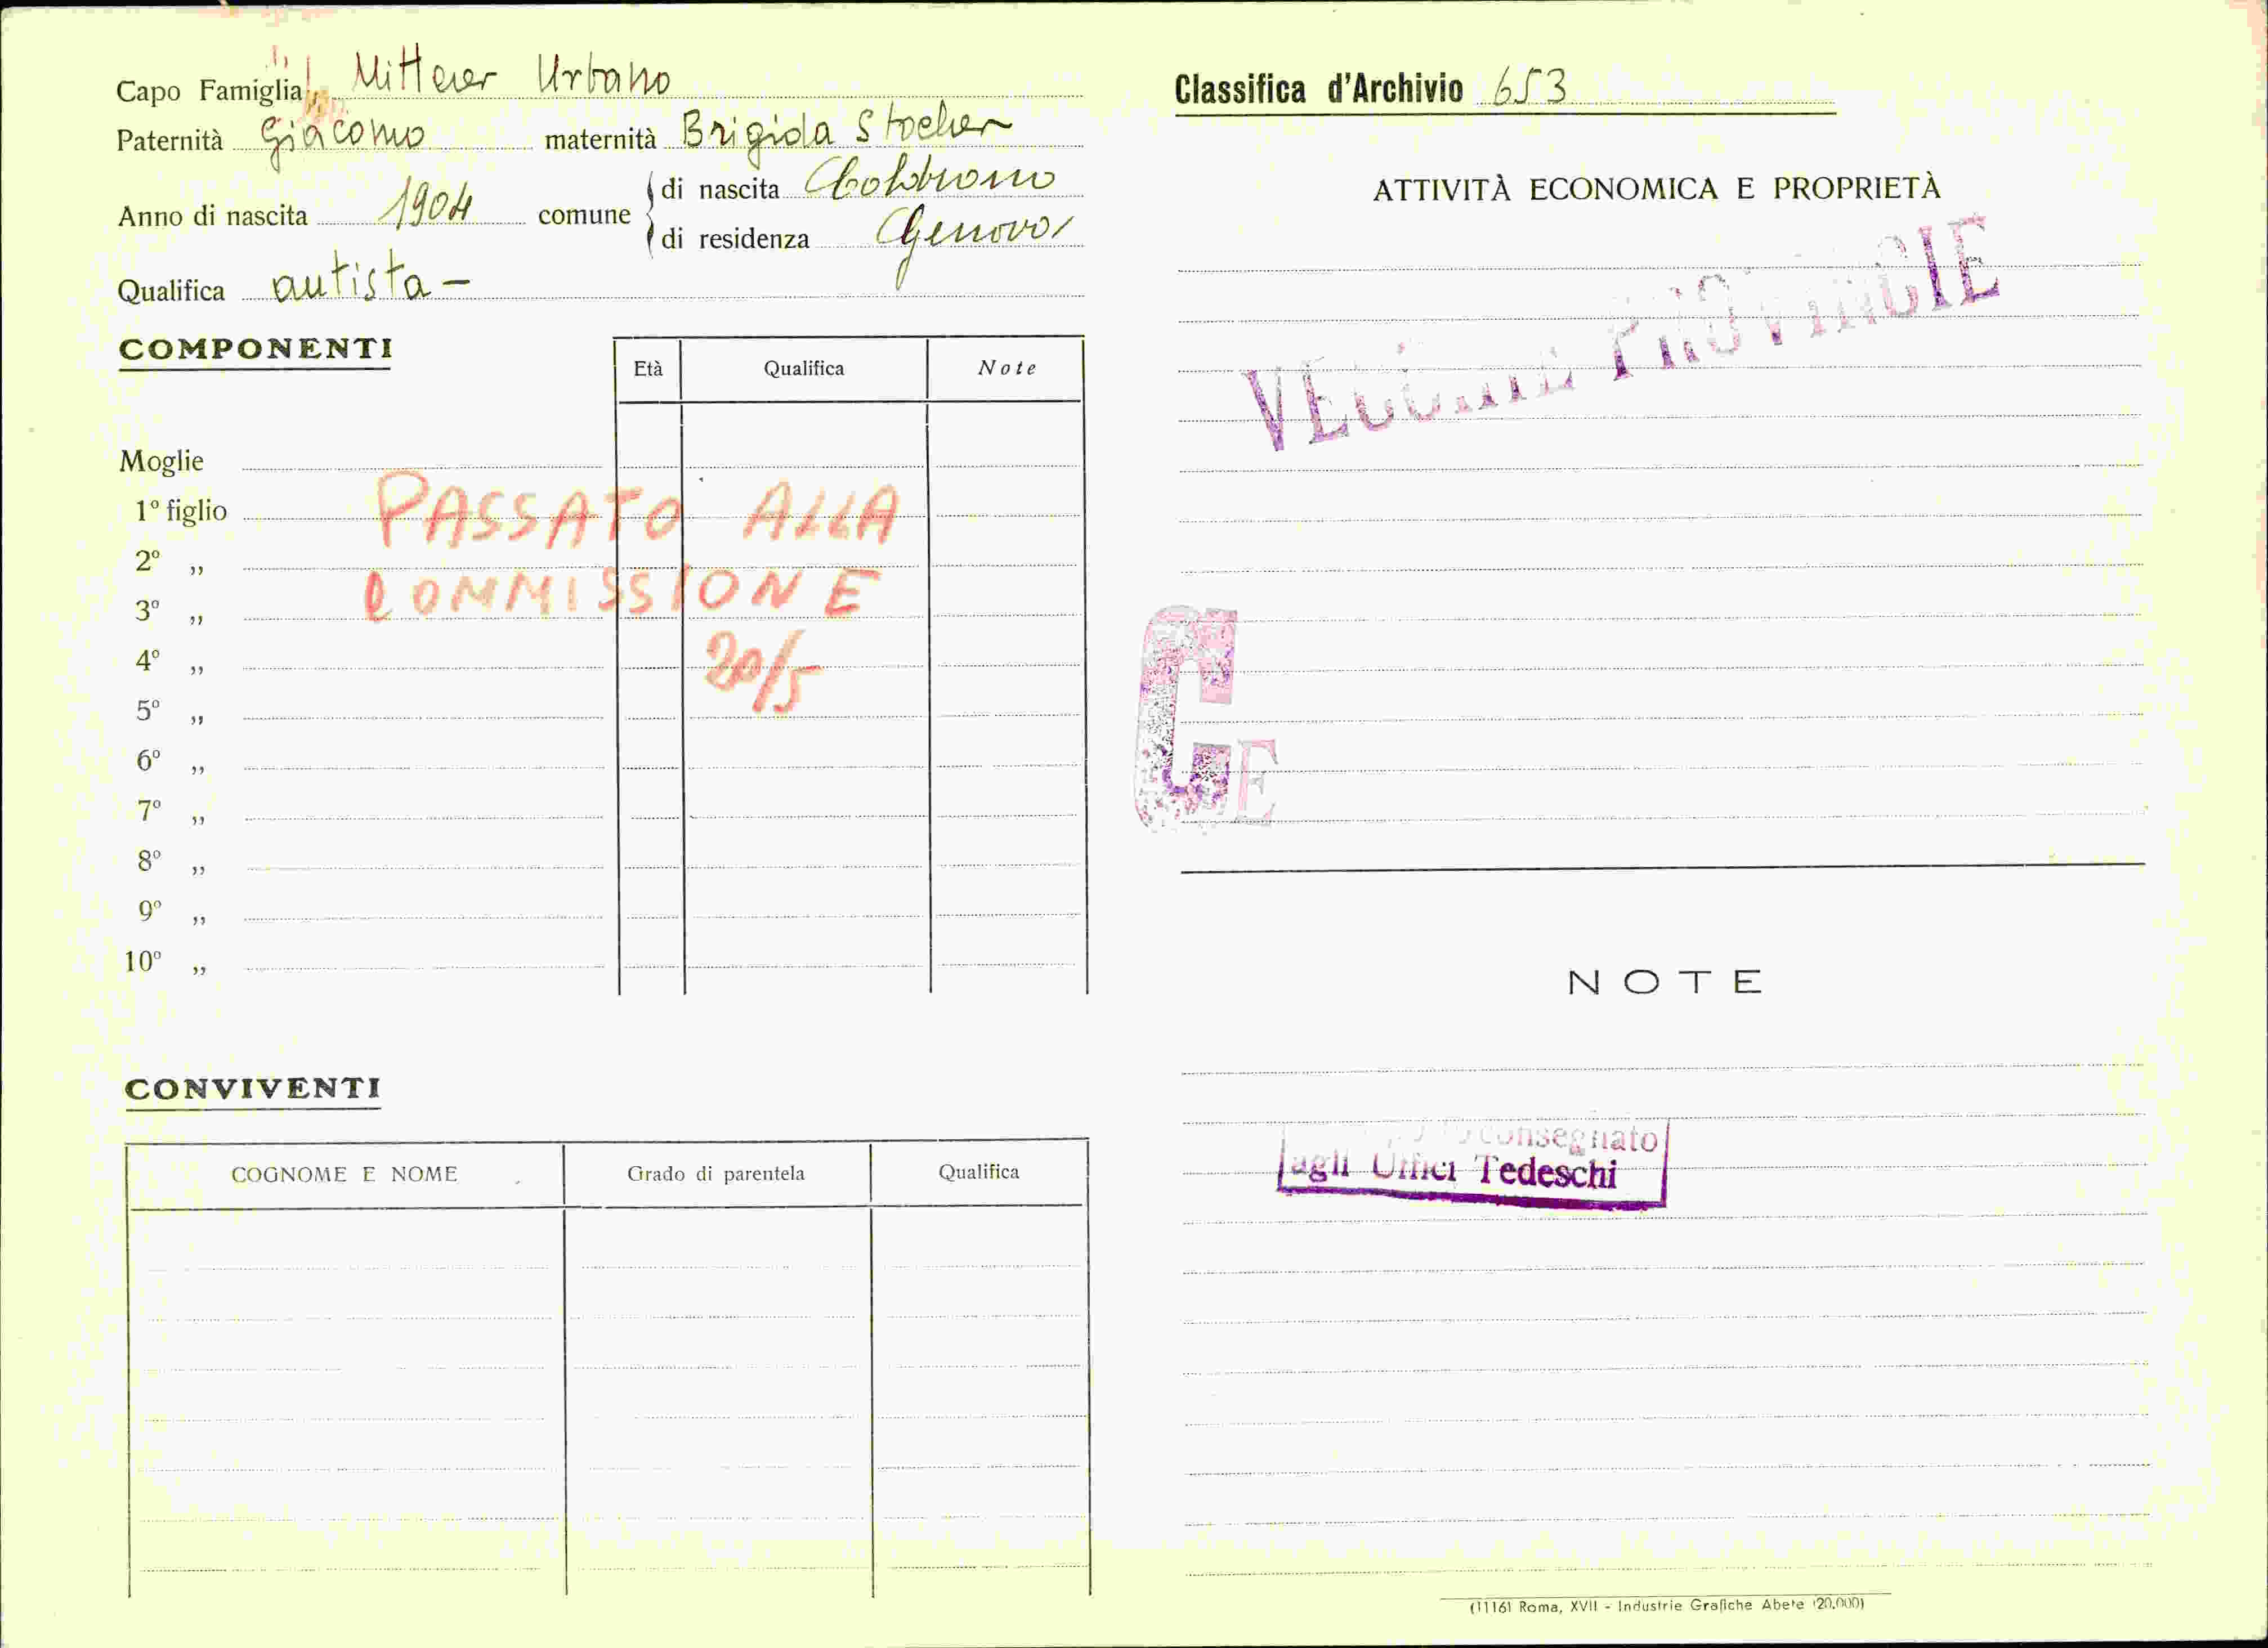 Capo Famiglia Mitterer Urbano
Paternità Giacomo maternità Brigida Stocker
Anno di nascita 1904 comune di nascita
di residenza Genova
Qualifica autista -
COMPONENTI
Età Qualifica Note
Moglie
1º figlio
2º ,,
3º ,,
4º ,,
5º ,,
6º ,,
7º ,,
8º ,,
9º ,,
10º ,,
PASSATO ALLA
COMMISSIONE
20/5
CONVIVENTI
COGNOME E NOME Grado di parentela Qualifica
Classifica d'Archivio 653
ATTIVITÀ ECONOMICA E PROPRIETÀ
VECCHIE PROVINCIE
G E
NOTE
consegnato
agli Uffici Tedeschi
(1116) Roma, XVII - Industrie Grafiche Abete (20.000)